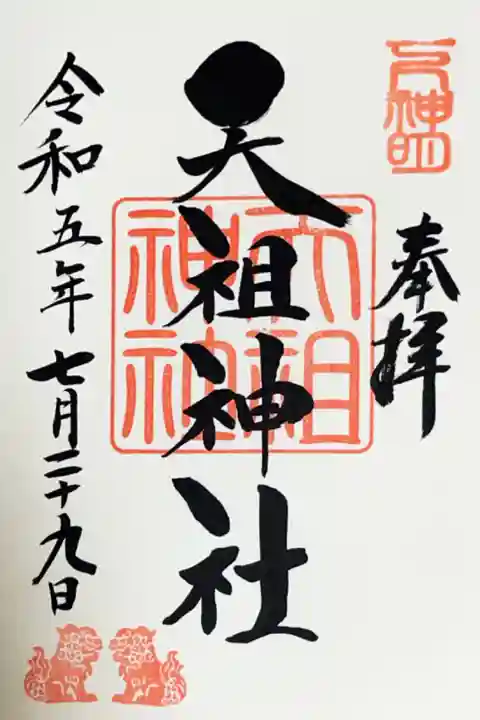 神明
奉拝
天祖神社
天祖神社
令和五年七月二十九日